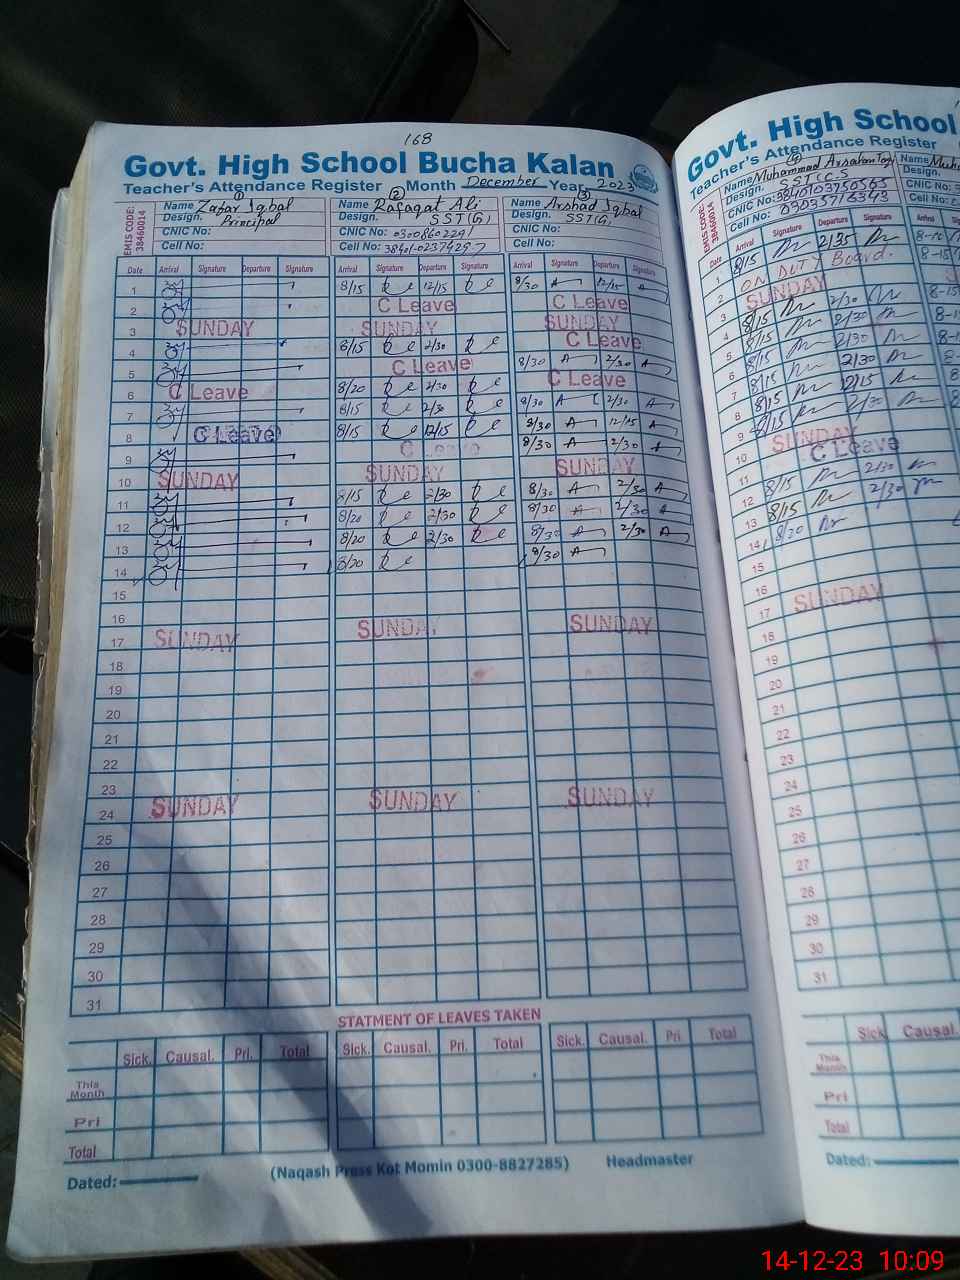 168
Govt. High School Bucha Kalan
Teacher's Attendance Register Month December Year 2023
EMIS CODE: 38460014
① Name Zafar Iqbal
Design. Principal
CNIC No:
Cell No:
② Name Rafaqat Ali
Design. SST(G)
CNIC No: 0300860229
Cell No: 38401-0237429-7
③ Name Arshad Iqbal
Design. SST(G)
CNIC No:
Cell No:
Date Arrival Signature Departure Signature Arrival Signature Departure Signature Arrival Signature Departure Signature
1 8/15 12/15 8/30 12/15
2 C Leave C Leave
3 SUNDAY SUNDAY SUNDAY
4 8/15 2/30 C Leave
5 C Leave 8/30 2/30
6 C Leave 8/20 2/30 C Leave
7 8/15 2/30 8/30 2/30
8 C Leave 8/15 12/15 8/30 12/15
9 C Leave 8/30 2/30
10 SUNDAY SUNDAY SUNDAY
11 8/15 2/30 8/30 2/30
12 8/20 2/30 8/30 2/30
13 8/20 2/30 8/30 2/30
14 8/20 8/30
15
16
17 SUNDAY SUNDAY SUNDAY
18
19
20
21
22
23
24 SUNDAY SUNDAY SUNDAY
25
26
27
28
29
30
31
STATMENT OF LEAVES TAKEN
Sick. Causal. Pri. Total Sick. Causal. Pri. Total Sick. Causal. Pri. Total
This Month
Pri
Total
Dated:
(Naqash Press Kot Momin 0300-8827285) Headmaster
Govt. High School
Teacher's Attendance Register
EMIS CODE: 38460014
④ Name Muhammad Arsalan
Design. SST(C.S
CNIC No: 3840103750565
Cell No: 03035716343
Name
Design.
CNIC No:
Cell No:
Date Arrival Signature Departure Signature Arrival Signature
1 8/15 2/35 8-10
2 ON DUTY Board. 8-15
3 SUNDAY
4 8/15 2/30 8-15
5 8/15 2/30
6 8/15 2/30
7 8/15 2/30
8 8/15 12/15
9 8/15 2/30
10 SUNDAY
11 C Leave
12 8/15 2/30
13 8/15 2/30
14 8/20
15
16
17 SUNDAY
18
19
20
21
22
23
24
25
26
27
28
29
30
31
Sick Causal.
This Month
Pri
Total
Dated:
14-12-23 10:09